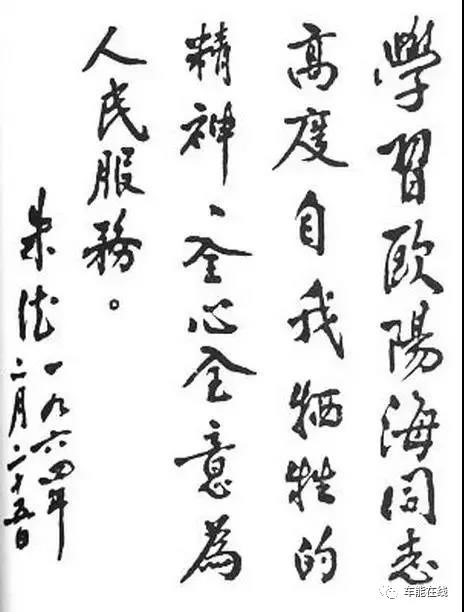 學習歐陽海同志
高度自我牺牲的
精神、全心全意為
人民服務。
朱德
一九六四年
二月二十五日
车能在线